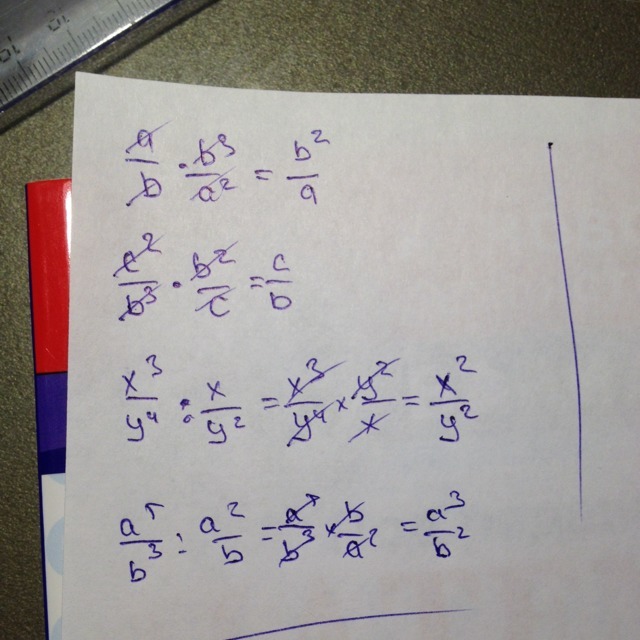 a/b · b³/a² = b²/a
c²/b³ · b²/c = c/b
x³/y⁴ : x/y² = x³/y⁴ × y²/x = x²/y²
a⁵/b³ : a²/b = a⁵/b³ × b/a² = a³/b²